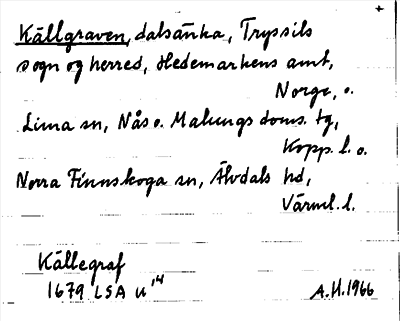 +
Källgraven, dalsänka, Tryssils
sogn og herred, Hedemarkens amt,
Norge, o.
Lima sn, Nås o. Malungs doms. tg,
Kopp. l. o.
Norra Finnskoga sn, Älvdals hd,
Värml. l.
Källegraf
1679 LSA U 14
A.H. 1966